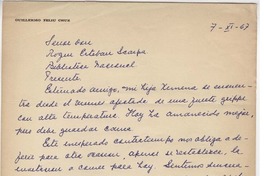 GUILLERMO FELIU CRUZ
7-XI-67
Señor don
Roque Esteban Scarpa
Biblioteca Nacional
Presente
Estimado amigo, - mi hija Ximena se encuen-
tra desde el afectada de una fuerte grippe
con alta temperatura. Hoy ha amanecido mejor,
pero debe guardar cama.
Este inesperado contratiempo nos obliga a de-
jar para otra ocasión, apenas se restablezca, la
a comer para hoy. Sentimos